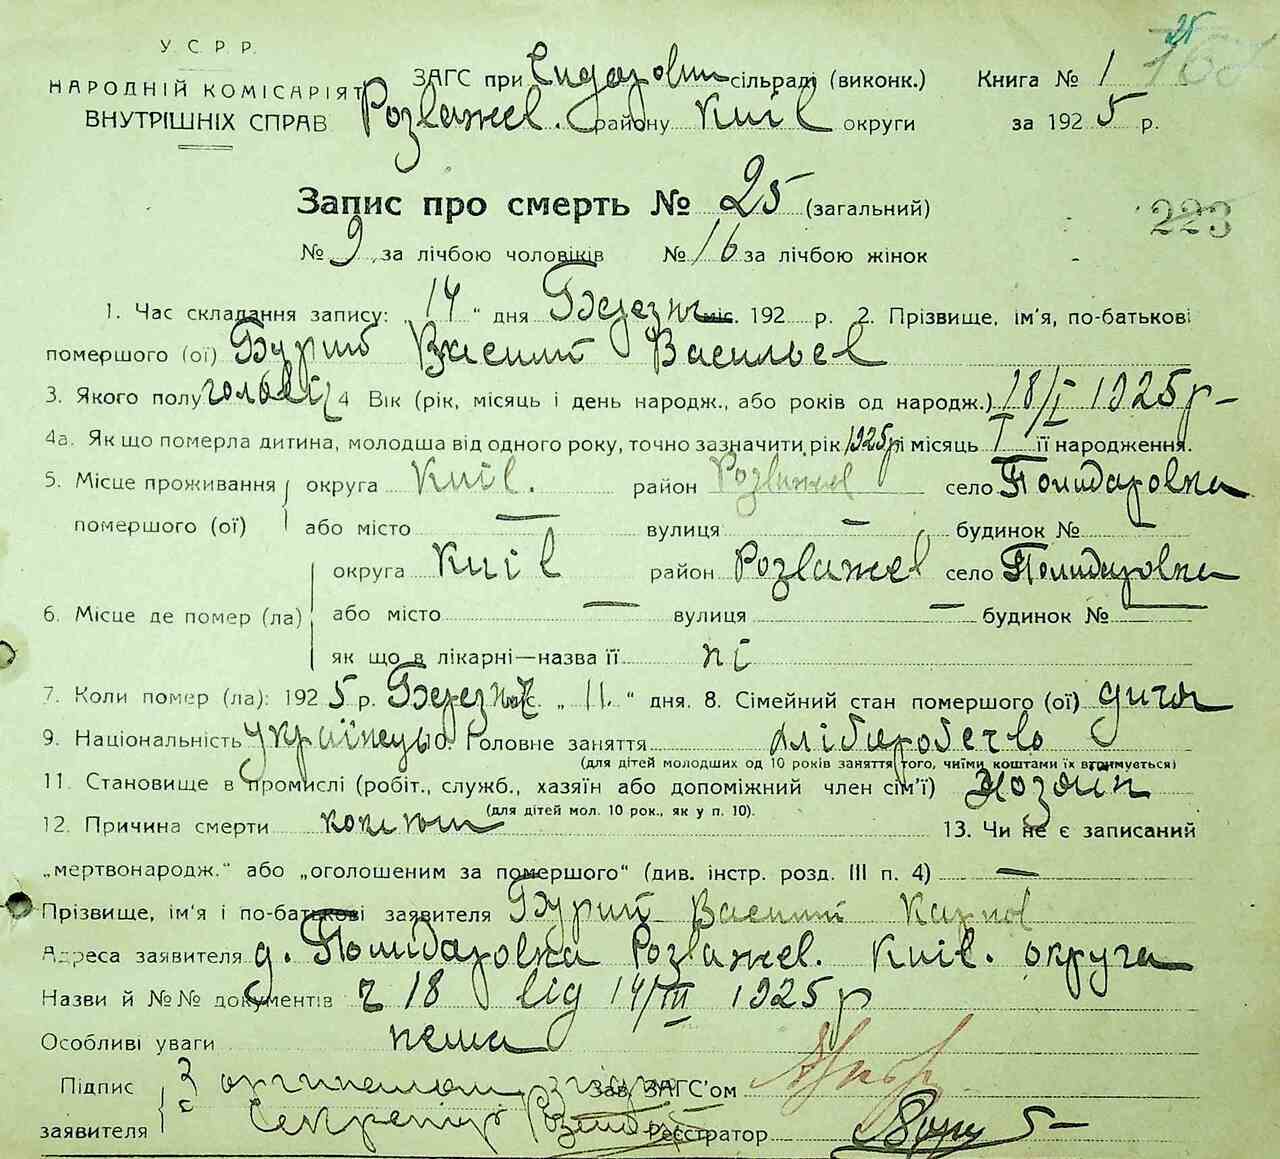 У. С. Р. Р.
НАРОДНІЙ КОМІСАРІЯТ
ВНУТРІШНІХ СПРАВ
ЗАГС при сільраді (виконк.)
Розважев. району Київ округи
Книга № 1
за 1925 р.
25
223
Запис про смерть № 25 (загальний)
№ 9 за лічбою чоловіків № 16 за лічбою жінок
1. Час складання запису: „ 14 " дня Березня міс. 192 р. 2. Прізвище, ім'я, по-батькові
помершого (ої) Бурий Василий Васильев
3. Якого полу 4 Вік (рік, місяць і день народж., або років од народж.) 18/I 1925 р
4а. Як що померла дитина, молодша від одного року, точно зазначити рік 1925 р і місяць I її народження.
5. Місце проживання округа Київ. район Розважев село
помершого (ої) або місто — вулиця — будинок №
округа Київ район Розважев село
6. Місце де помер (ла) або місто — вулиця — будинок № —
як що в лікарні—назва її ні
7. Коли помер (ла): 1925 р. міс. „ 11 " дня. 8. Сімейний стан помершого (ої) дитя
9. Національність українець 10. Головне заняття хліборобство
(для дітей молодших од 10 років заняття того, чиїми коштами їх втримується)
11. Становище в промислі (робіт., служб., хазяїн або допоміжний член сім'ї) Хозяїн
(для дітей мол. 10 рок., як у п. 10).
12. Причина смерти 13. Чи не є записаний
„мертвонародж." або „оголошеним за помершого" (див. інстр. розд. III п. 4) —
Прізвище, ім'я і по-батькові заявителя Бурий Василий
Адреса заявителя д. Розважев. Київ. округа
Назви й №№ документів 18 від 14/III 1925 р
Особливі уваги нема
Підпис З оригіналом згідно Зав. ЗАГС'ом
заявителя Секретар Реєстратор